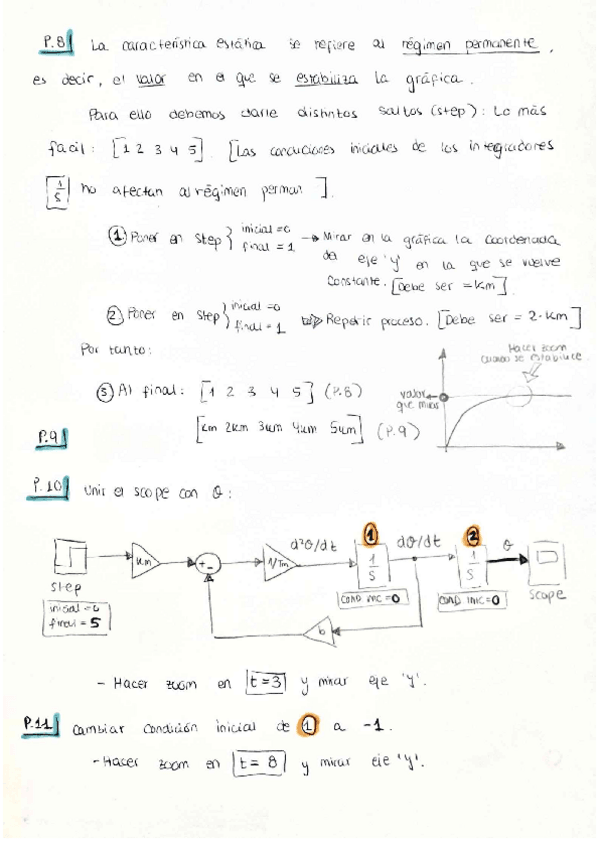 P.8 La característica estática se refiere al régimen permanente,
es decir, el valor en el que se estabiliza la gráfica.
Para ello debemos darle distintos saltos (step): Lo más
fácil: [1 2 3 4 5]. [Las condiciones iniciales de los integradores
1/s no afectan al régimen perman ].
① Poner en step } inicial = 0 final = 1 → Mirar en la gráfica la coordenada
del eje 'y' en la que se vuelve
constante. [Debe ser = Km]
② Poner en step } inicial = 0 final = 1 ⇒ Repetir proceso. [Debe ser = 2·Km]
Por tanto:
Hacer zoom
cuando se estabilice
valor
que miras
③ Al final: [1 2 3 4 5] (P.8)
[Km 2Km 3Km 4Km 5Km] (P.9)
P.9
P.10 Unir el scope con θ:
① ②
d²θ/dt dθ/dt θ
Km + - 1/Tm 1/s 1/s
step COND INIC = 0 COND INIC = 0 scope
inicial = 0
final = 5
b
- Hacer zoom en t = 3 y mirar eje 'y'.
P.11 Cambiar condición inicial de ① a -1.
- Hacer zoom en t = 8 y mirar eje 'y'.